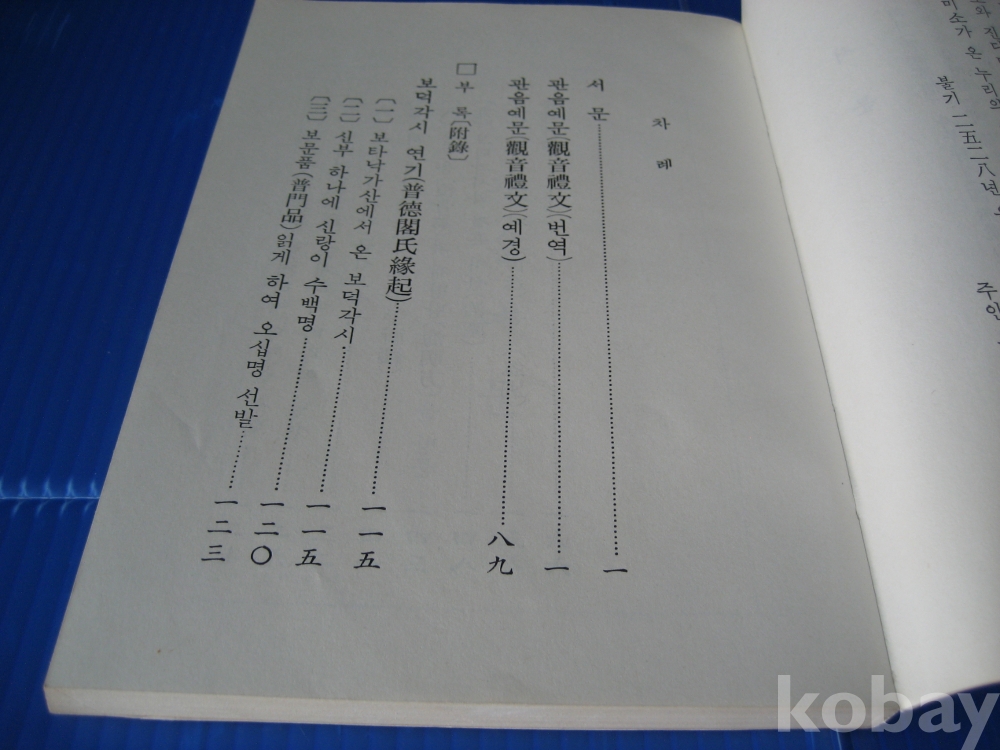 미소가 온 누리의
불기 二五二八년
차 례
서 문 一
관음예문(觀音禮文)(번역) 一
관음예문(觀音禮文)(예경) 八九
□ 부 록〔附錄〕
보덕각시 연기(普德閣氏緣起) 一一五
〔一〕 보타낙가산에서 온 보덕각시 一一五
〔二〕 신부 하나에 신랑이 수백명 一二〇
〔三〕 보문품(普門品)읽게 하여 오십명 선발 一二三
kobay